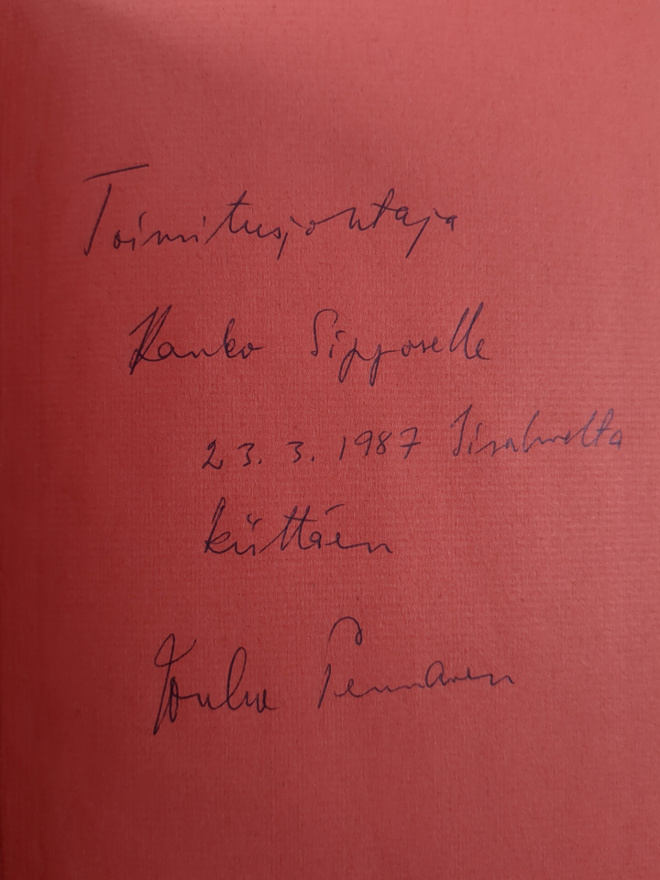 Toimitusjohtaja
Kauko Sipposelle
23. 3. 1987 Iisalmelta
kiittäen
Jouko Pennanen